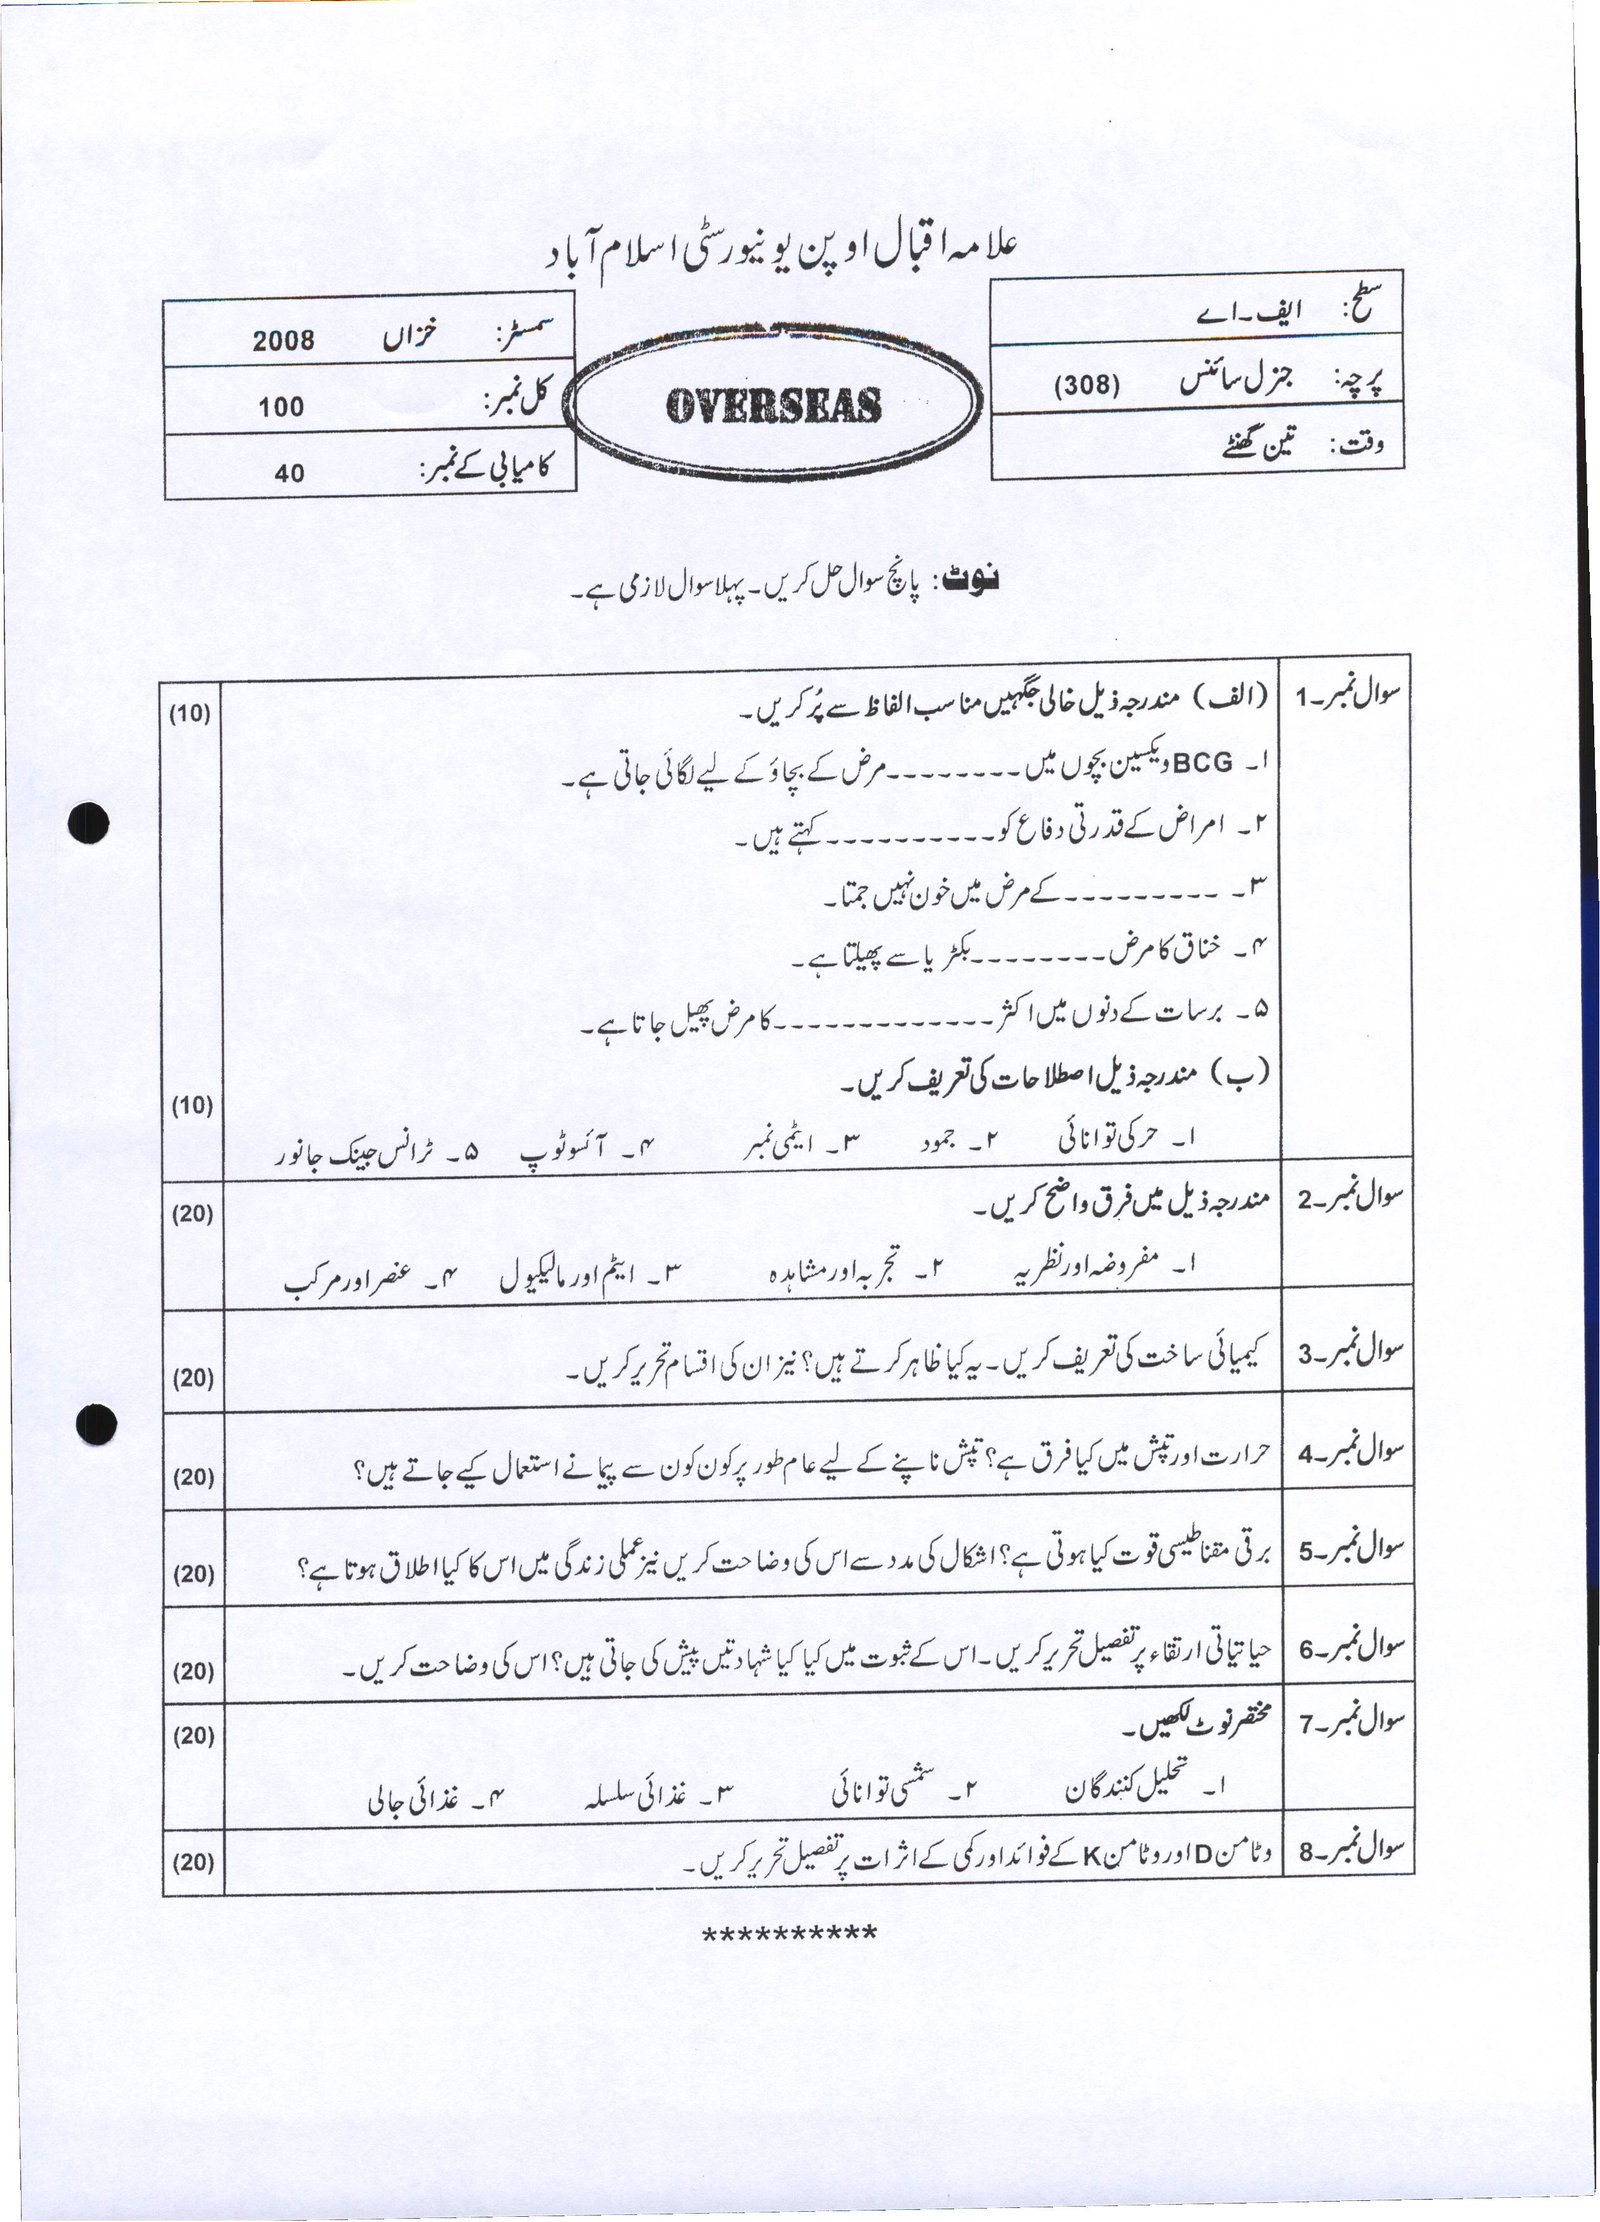 علامہ اقبال اوپن یونیورسٹی اسلام آباد
سطح: ایف۔اے
پرچہ: جنرل سائنس (308)
وقت: تین گھنٹے
OVERSEAS
سمسٹر: خزاں 2008
کل نمبر: 100
کامیابی کے نمبر: 40
نوٹ: پانچ سوال حل کریں۔ پہلا سوال لازمی ہے۔
سوال نمبر۔1 (الف) مندرجہ ذیل خالی جگہیں مناسب الفاظ سے پُر کریں۔ (10)
۱۔ BCG ویکسین بچوں میں ۔۔۔۔۔۔۔۔ مرض کے بچاؤ کے لیے لگائی جاتی ہے۔
۲۔ امراض کے قدرتی دفاع کو ۔۔۔۔۔۔۔۔۔۔ کہتے ہیں۔
۳۔ ۔۔۔۔۔۔۔۔۔ کے مرض میں خون نہیں جمتا۔
۴۔ خناق کا مرض ۔۔۔۔۔۔۔۔ بکٹریا سے پھیلتا ہے۔
۵۔ برسات کے دنوں میں اکثر ۔۔۔۔۔۔۔۔۔۔۔۔۔ کا مرض پھیل جاتا ہے۔
(ب) مندرجہ ذیل اصطلاحات کی تعریف کریں۔ (10)
۱۔ حرکی توانائی ۲۔ جمود ۳۔ ایٹمی نمبر ۴۔ آئسوٹوپ ۵۔ ٹرانس جینک جانور
سوال نمبر۔2 مندرجہ ذیل میں فرق واضح کریں۔ (20)
۱۔ مفروضہ اور نظریہ ۲۔ تجربہ اور مشاہدہ ۳۔ ایٹم اور مالیکیول ۴۔ عنصر اور مرکب
سوال نمبر۔3 کیمیائی ساخت کی تعریف کریں۔ یہ کیا ظاہر کرتے ہیں؟ نیز ان کی اقسام تحریر کریں۔ (20)
سوال نمبر۔4 حرارت اور تپش میں کیا فرق ہے؟ تپش ناپنے کے لیے عام طور پر کون کون سے پیمانے استعمال کیے جاتے ہیں؟ (20)
سوال نمبر۔5 برقی مقناطیسی قوت کیا ہوتی ہے؟ اشکال کی مدد سے اس کی وضاحت کریں نیز عملی زندگی میں اس کا کیا اطلاق ہوتا ہے؟ (20)
سوال نمبر۔6 حیاتیاتی ارتقاء پر تفصیل تحریر کریں۔ اس کے ثبوت میں کیا کیا شہادتیں پیش کی جاتی ہیں؟ اس کی وضاحت کریں۔ (20)
سوال نمبر۔7 مختصر نوٹ لکھیں۔ (20)
۱۔ تحلیل کنندگان ۲۔ شمسی توانائی ۳۔ غذائی سلسلہ ۴۔ غذائی جالی
سوال نمبر۔8 وٹامن D اور وٹامن K کے فوائد اور کمی کے اثرات پر تفصیل تحریر کریں۔ (20)
**********